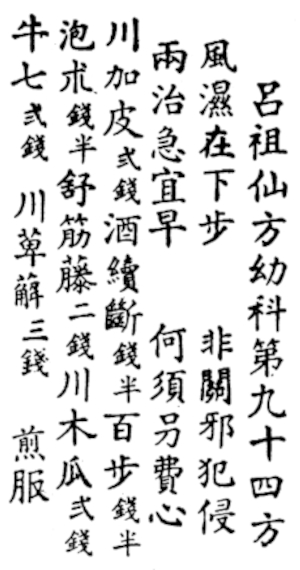 呂祖仙方幼科第九十四方
風濕在下步 非關邪犯侵
兩治急宜早 何須另費心
川加皮弍錢酒續斷錢半百步錢半
泡朮錢半舒筋藤二錢川木瓜弍錢
牛七弍錢 川萆薢三錢 煎服